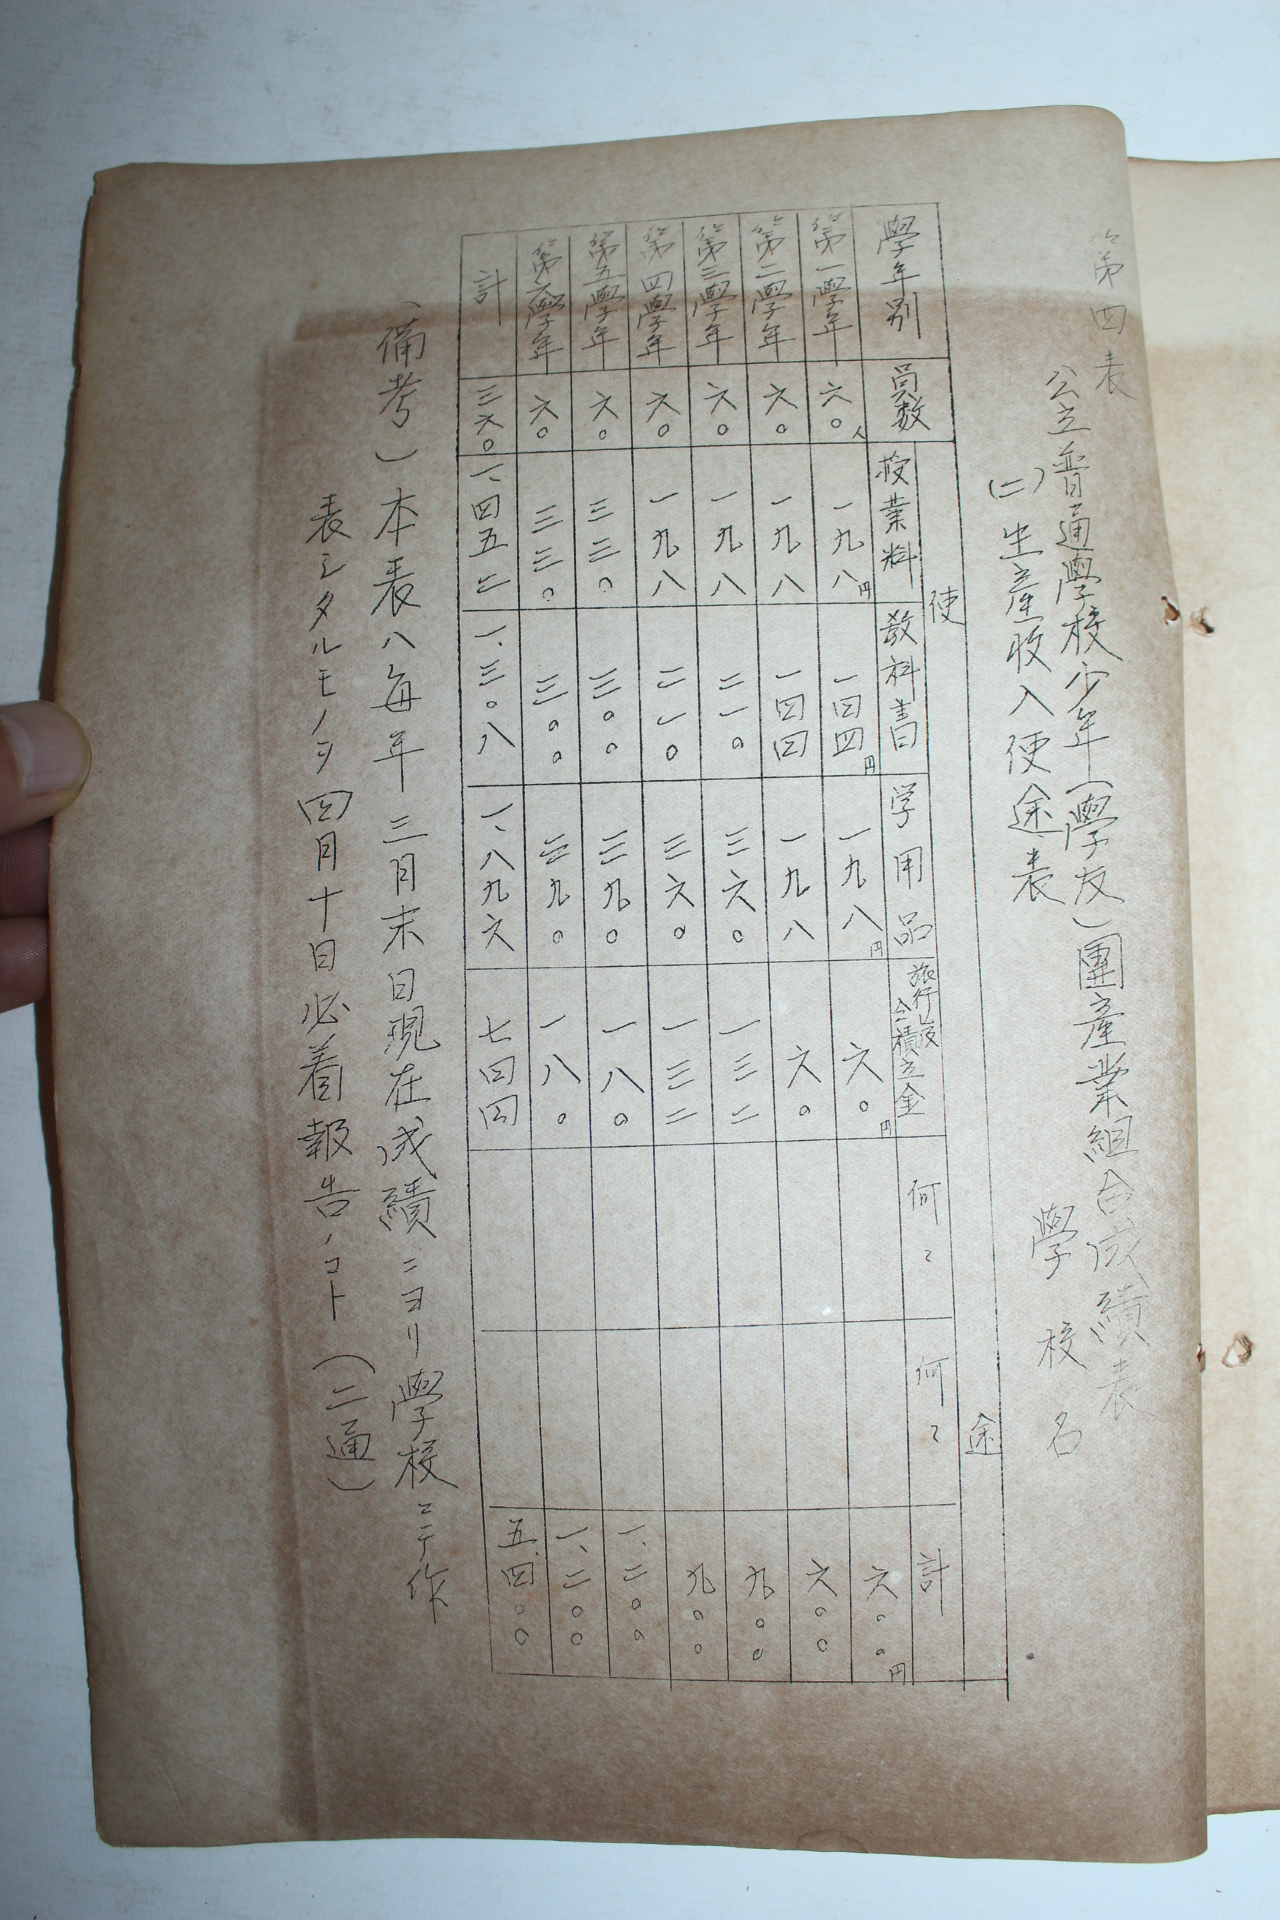 第四表
公立普通學校少年(學友)團産業組合成績表
(二)生産收入使途表
學校名
使途
學年別 員数 授業料 教科書 学用品 旅行及 仝積立金 何々 何々 計
第一學年 六〇人 一九八円 一四四円 一九八円 六〇円 六〇〇円
第二學年 六〇 一九八 一四四 一九八 六〇 六〇〇
第三學年 六〇 一九八 二一〇 三六〇 一三二 九〇〇
第四學年 六〇 一九八 二一〇 三六〇 一三二 九〇〇
第五學年 六〇 三三〇 三〇〇 三九〇 一八〇 一、二〇〇
第六學年 六〇 三三〇 三〇〇 三九〇 一八〇 一、二〇〇
計 三六〇 一、四五二 一、三〇八 一、八九六 七四四 五、四〇〇
(備考)本表ハ毎年三月末日現在成績ニヨリ學校ニテ作
表シタルモノヲ四月十日必着報告ノコト(二通)